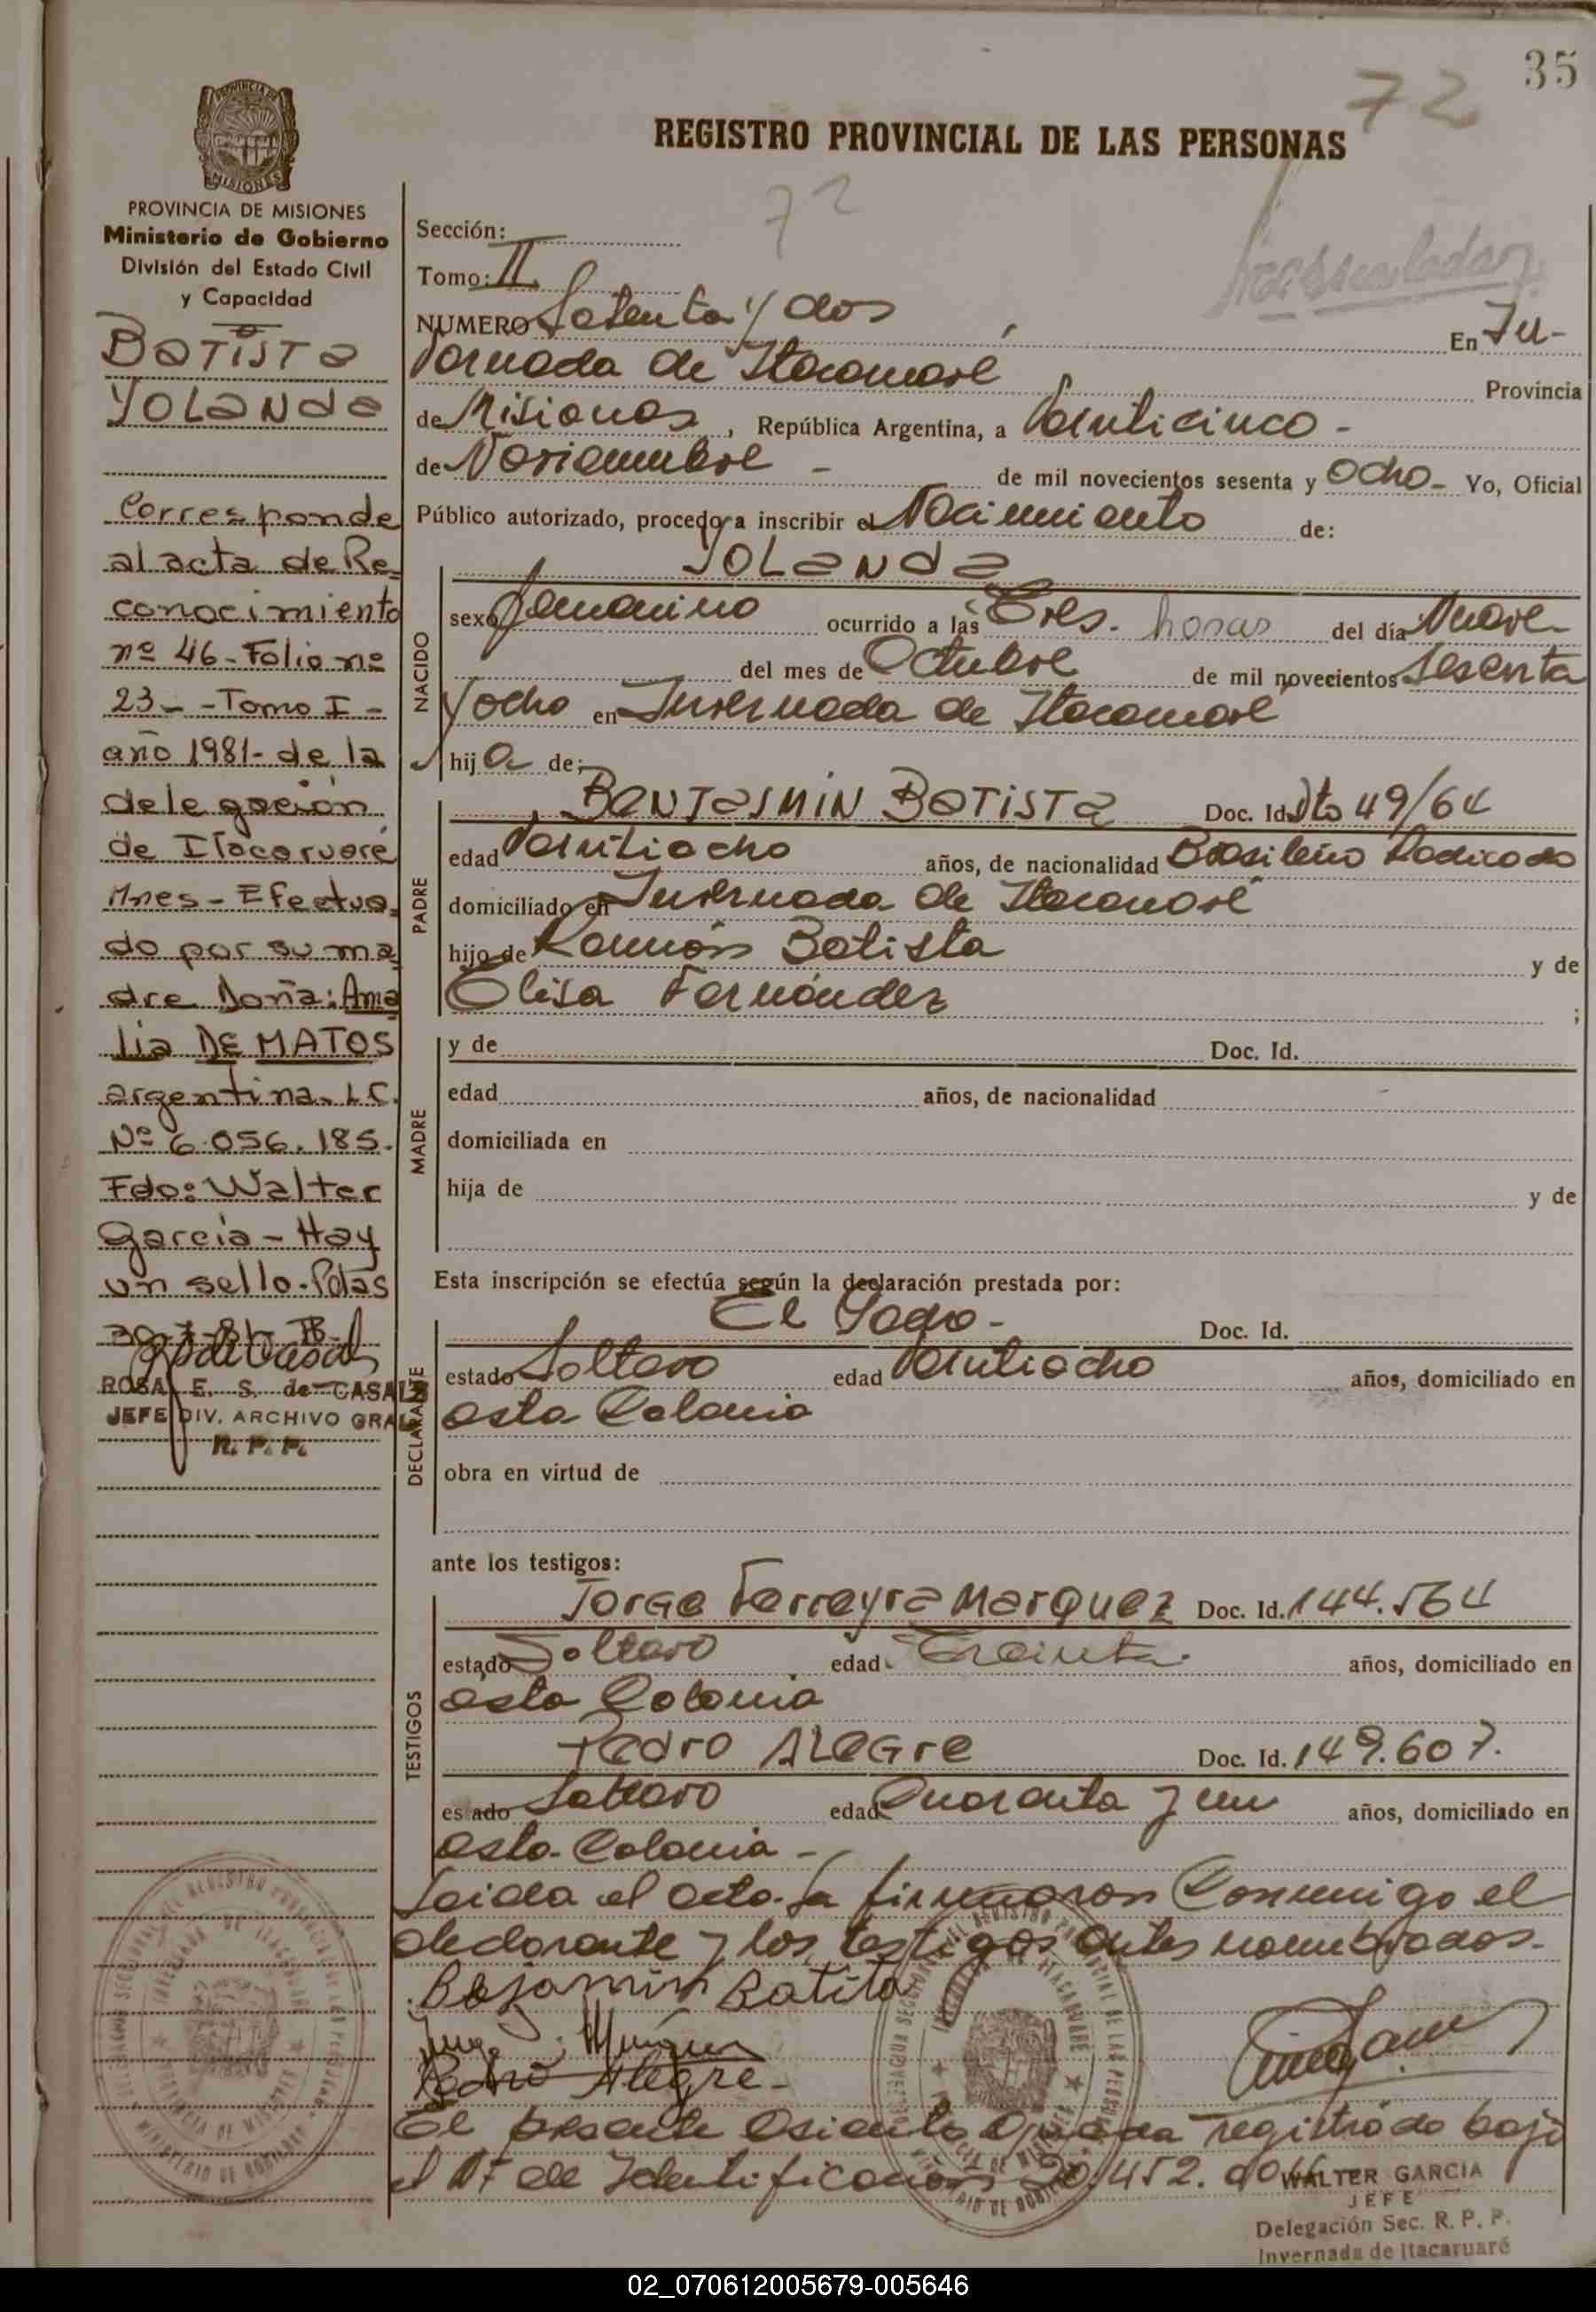 35
72
REGISTRO PROVINCIAL DE LAS PERSONAS
72
PROVINCIA DE MISIONES
Ministerio de Gobierno
División del Estado Civil
y Capacidad
BaTISTa
YOLaNda
Corresponde
al acta de Re-
conocimiento
nº 46-Folio nº
23--Tomo I-
año 1981- de la
delegación
de Itacaruaré
Mnes-Efectua-
do por su ma-
dre Doña: Ama
lia DE MATOS
argentina-L.C.
Nº 6.056.185.
Fdo: Walter
García-Hay
un sello-Pdas
ROSA E. S. de CASALS
JEFE DIV. ARCHIVO GRAL
R. P. P.
Sección:
Tomo: II
NUMERO Setenta y dos En In-
vernada de Itacaruaré Provincia
de Misiones, República Argentina, a Veinticinco -
de Noviembre - de mil novecientos sesenta y Ocho- Yo, Oficial
Público autorizado, procedo a inscribir el Nacimiento de:
YOLaNda
NACIDO
sexo femenino ocurrido a las Tres. horas del día Nueve
del mes de Octubre de mil novecientos Sesenta
y ocho en Invernada de Itacaruaré
hija de:
PADRE
BENJaSMIN BaTISTa Doc. Id. Dto 49/64
edad Veintiocho años, de nacionalidad Brasileño Radicado
domiciliado en Invernada de Itacaruaré
hijo de Ramón Batista y de
Elisa Fernández ;
MADRE
y de Doc. Id.
edad años, de nacionalidad
domiciliada en
hija de y de
Esta inscripción se efectúa según la declaración prestada por:
DECLARANTE
El Doc. Id.
estado Soltero edad Veintiocho años, domiciliado en
esta Colonia
obra en virtud de
ante los testigos:
TESTIGOS
Jorge Ferreyra Marquez Doc. Id. 144.564
estado Soltero edad Treinta años, domiciliado en
esta Colonia
Pedro Alegre Doc. Id. 149.607.
estado Soltero edad Cuarenta y un años, domiciliado en
esta Colonia -
Leida el acta la firmaron Conmigo el
declarante y los testigos antes nombrados.
Bejamin Batita
Pedro Alegre-
El presente asiento queda registrado bajo
el Nº de Identificación 20.452.
WALTER GARCIA
JEFE
Delegación Sec. R. P. P.
Invernada de Itacaruaré
02_070612005679-005646